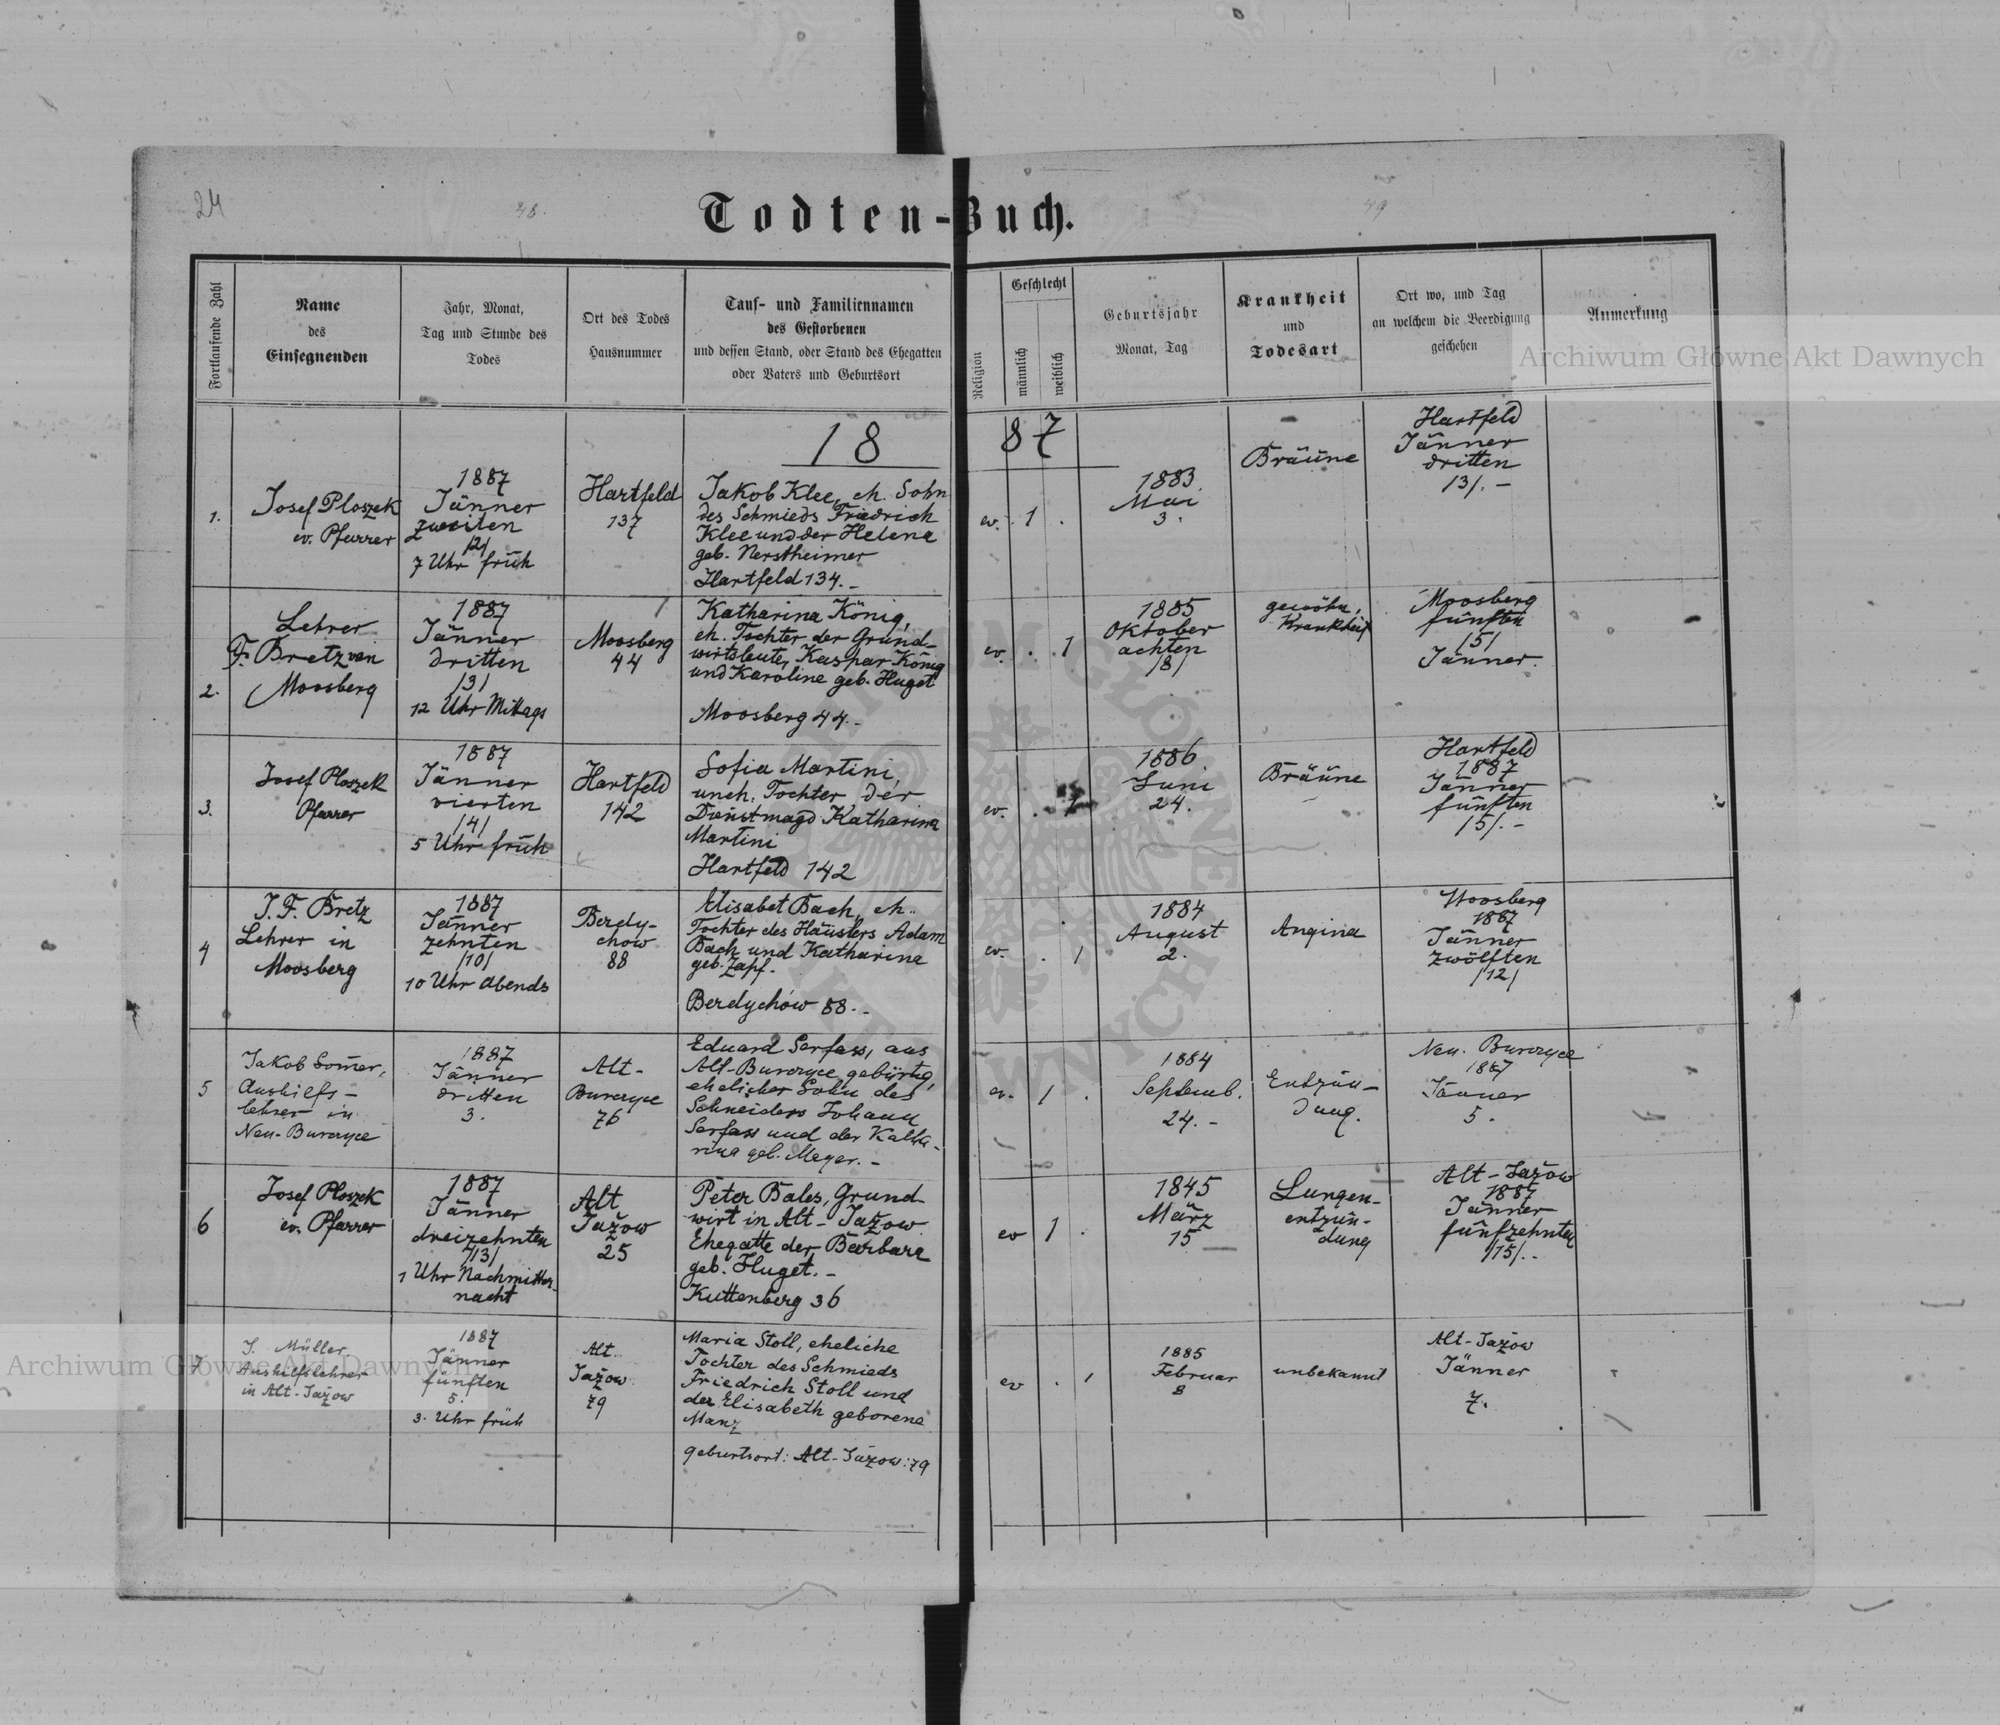 24
48.
49
Todten-Buch.
Fortlaufende Zahl
Name
des
Einsegnenden
Jahr, Monat,
Tag und Stunde des
Todes
Ort des Todes
Hausnummer
Tauf- und Familiennamen
des Gestorbenen
und dessen Stand, oder Stand des Ehegatten
oder Vaters und Geburtsort
Religion
Geschlecht
männlich
weiblich
Geburtsjahr
Monat, Tag
Krankheit
und
Todesart
Ort wo, und Tag
an welchem die Beerdigung
geschehen
Anmerkung
Archiwum Główne Akt Dawnych
1887
1.
Josef Ploszek
ev. Pfarrer
1887
Jänner
zweiten
/2/
7 Uhr früh
Hartfeld
137
Jakob Klee, eh. Sohn
des Schmieds Friedrich
Klee und der Helena
geb. Nerstheimer
Hartfeld 134.-
ev. 1 .
1883.
Mai
3.
Bräune
Hartfeld
Jänner
dritten
/3/.-
2.
Lehrer
F. Bretz von
Moosberg
1887
Jänner
dritten
/3/
12 Uhr Mittags
Moosberg
44
Katharina König,
eh. Tochter der Grund-
wirtsleute, Kaspar König
und Karoline geb. Huget
Moosberg 44.-
ev. . 1
1885
Oktober
achten
/8/
gewöhn.
Krankheit
Moosberg
fünften
/5/
Jänner.
3.
Josef Ploszek
Pfarrer
1887
Jänner
vierten
/4/
5 Uhr früh
Hartfeld
142
Sofia Martini,
uneh. Tochter der
Dienstmagd Katharina
Martini
Hartfeld 142
ev. . 1
1886
Juni
24.
Bräune
Hartfeld
1887
Jänner
fünften
/5/.-
4
J. F. Bretz
Lehrer in
Moosberg
1887
Jänner
zehnten
/10/
10 Uhr Abends
Berdy-
chow
88
Elisabet Bach, eh.
Tochter des Häuslers Adam
Bach und Katharina
geb. Zapf.
Berdychów 88.-
ev. . 1
1884
August
2.
Angina
Moosberg
1887
Jänner
zwölften
/12/
5
Jakob Somer,
Aushilfs-
lehrer in
Neu-Burczyce
1887
Jänner
dritten
3.
Alt-
Burczyce
76
Eduard Serfass, aus
Alt-Burczyce gebürtig,
ehelicher Sohn des
Schneiders Johann
Serfass und der Katha-
rina geb. Meyer.-
ev. 1 .
1884
Septemb.
24.-
Entzün-
dung.
Neu-Burczyce
1887
Jänner
5.
6
Josef Ploszek
ev. Pfarrer
1887
Jänner
dreizehnten
/13/
1 Uhr Nachmitter-
nacht
Alt
Jažow
25
Peter Bales, Grund-
wirt in Alt-Jažow
Ehegatte der Barbara
geb. Huget.-
Kuttenberg 36
ev 1 .
1845
März
15
Lungen-
entzün-
dung
Alt-Jažow
1887
Jänner
fünfzehnten
/15/.-
7
J. Müller,
Aushilfslehrer
in Alt-Jažow
1887
Jänner
fünften
5.
3. Uhr früh
Alt
Jažow
79
Maria Stoll, eheliche
Tochter des Schmieds
Friedrich Stoll und
der Elisabeth geborene
Manz
geburtsort: Alt-Jažow: 79
ev . 1
1885
Februar
8
unbekannt
Alt-Jažow
Jänner
7.
Archiwum Główne Akt Dawnych